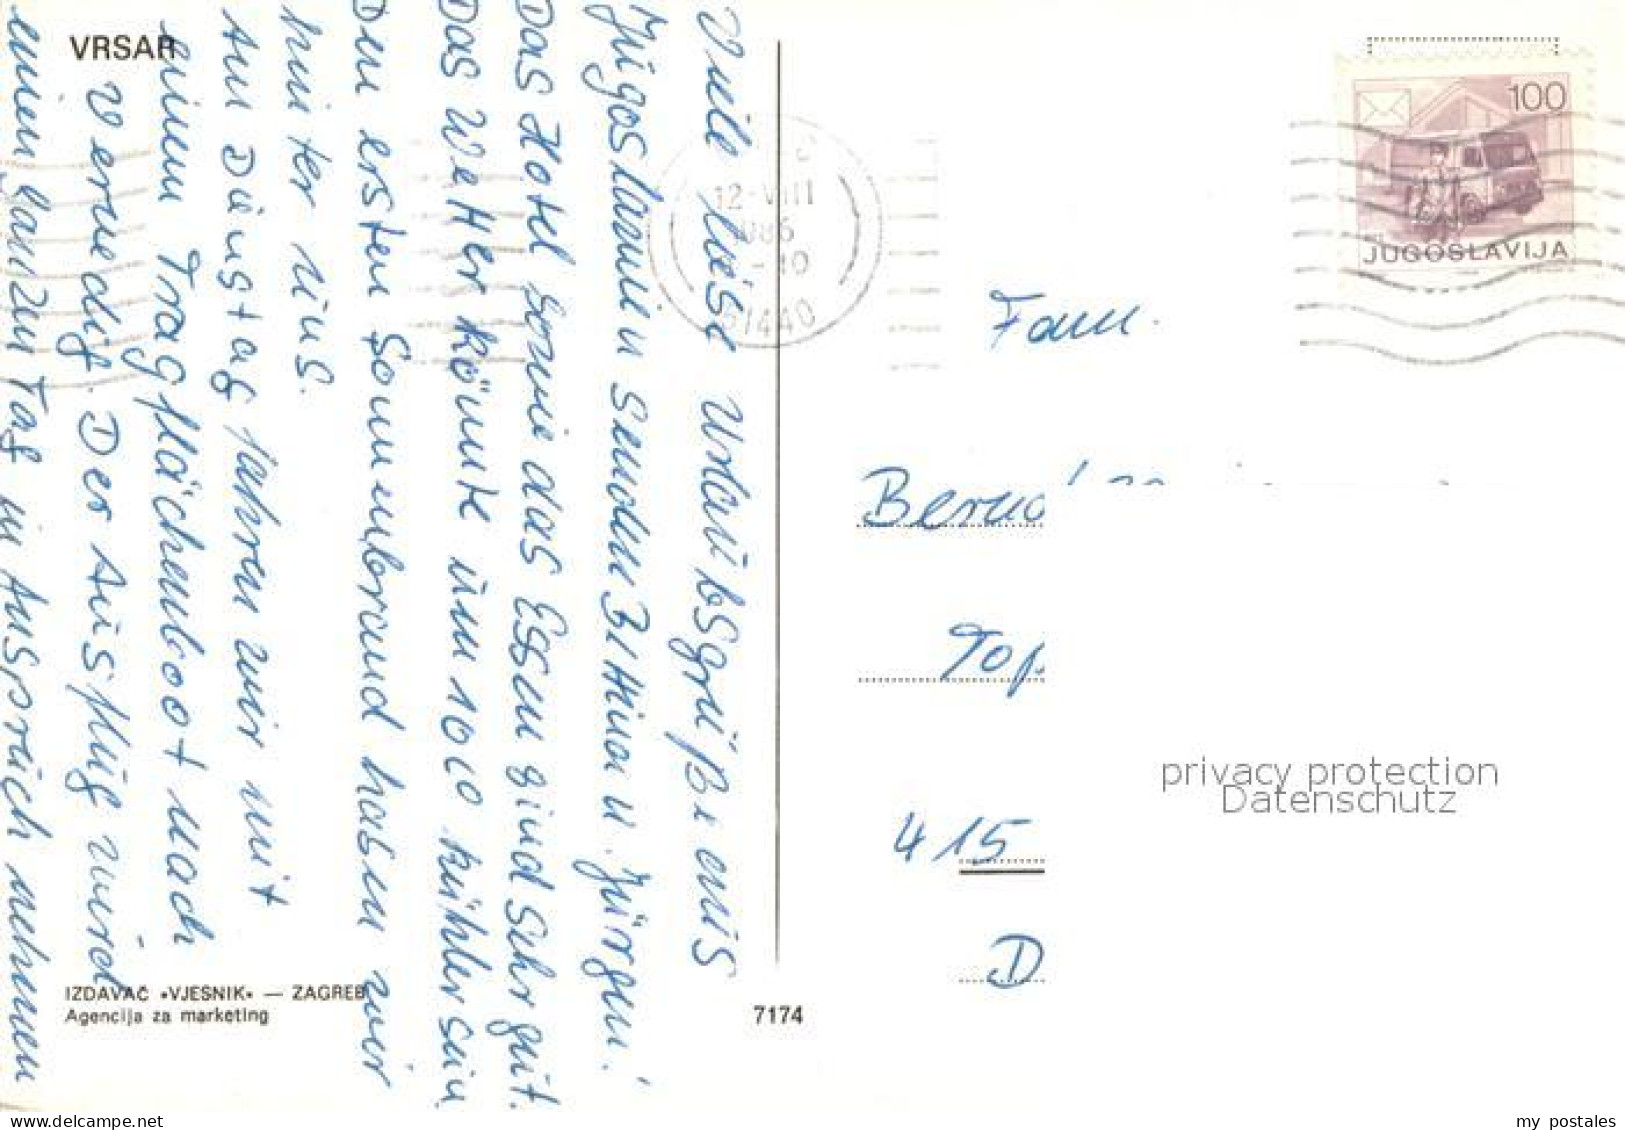 VRSAR
Viele liebe Urlaubsgrüße aus
Jugoslawien senden Bettina u. Jürgen!
Das Hotel sowie das Essen sind sehr gut.
Das Wetter könnte um 10°C kühler sein
Den ersten Sonnenbrand haben wir
hinter uns.
Am Dienstag fahren wir mit
einem Tragflächenboot nach
Venedig. Der Ausflug wird
einen ganzen Tag in Anspruch nehmen
IZDAVAČ •VJESNIK• — ZAGREB
Agencija za marketing
7174
12-VIII
1986
-10
51440
100
JUGOSLAVIJA
Fam.
Bernd
Top
415
D
privacy protection
Datenschutz
my postales